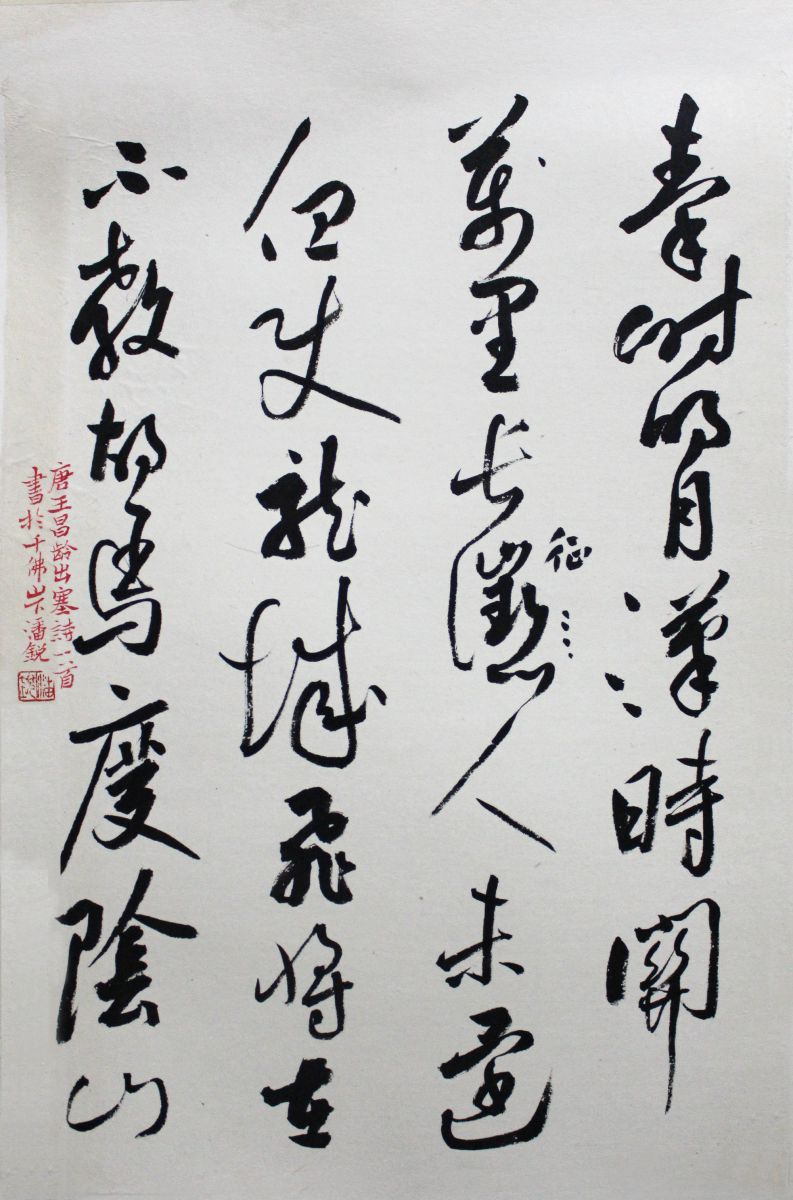 秦时明月漢時關
萬里长懲人未還
征
但使龍城飛將在
不教胡馬度陰山
唐王昌龄出塞詩一首
書於千佛山下潘銳